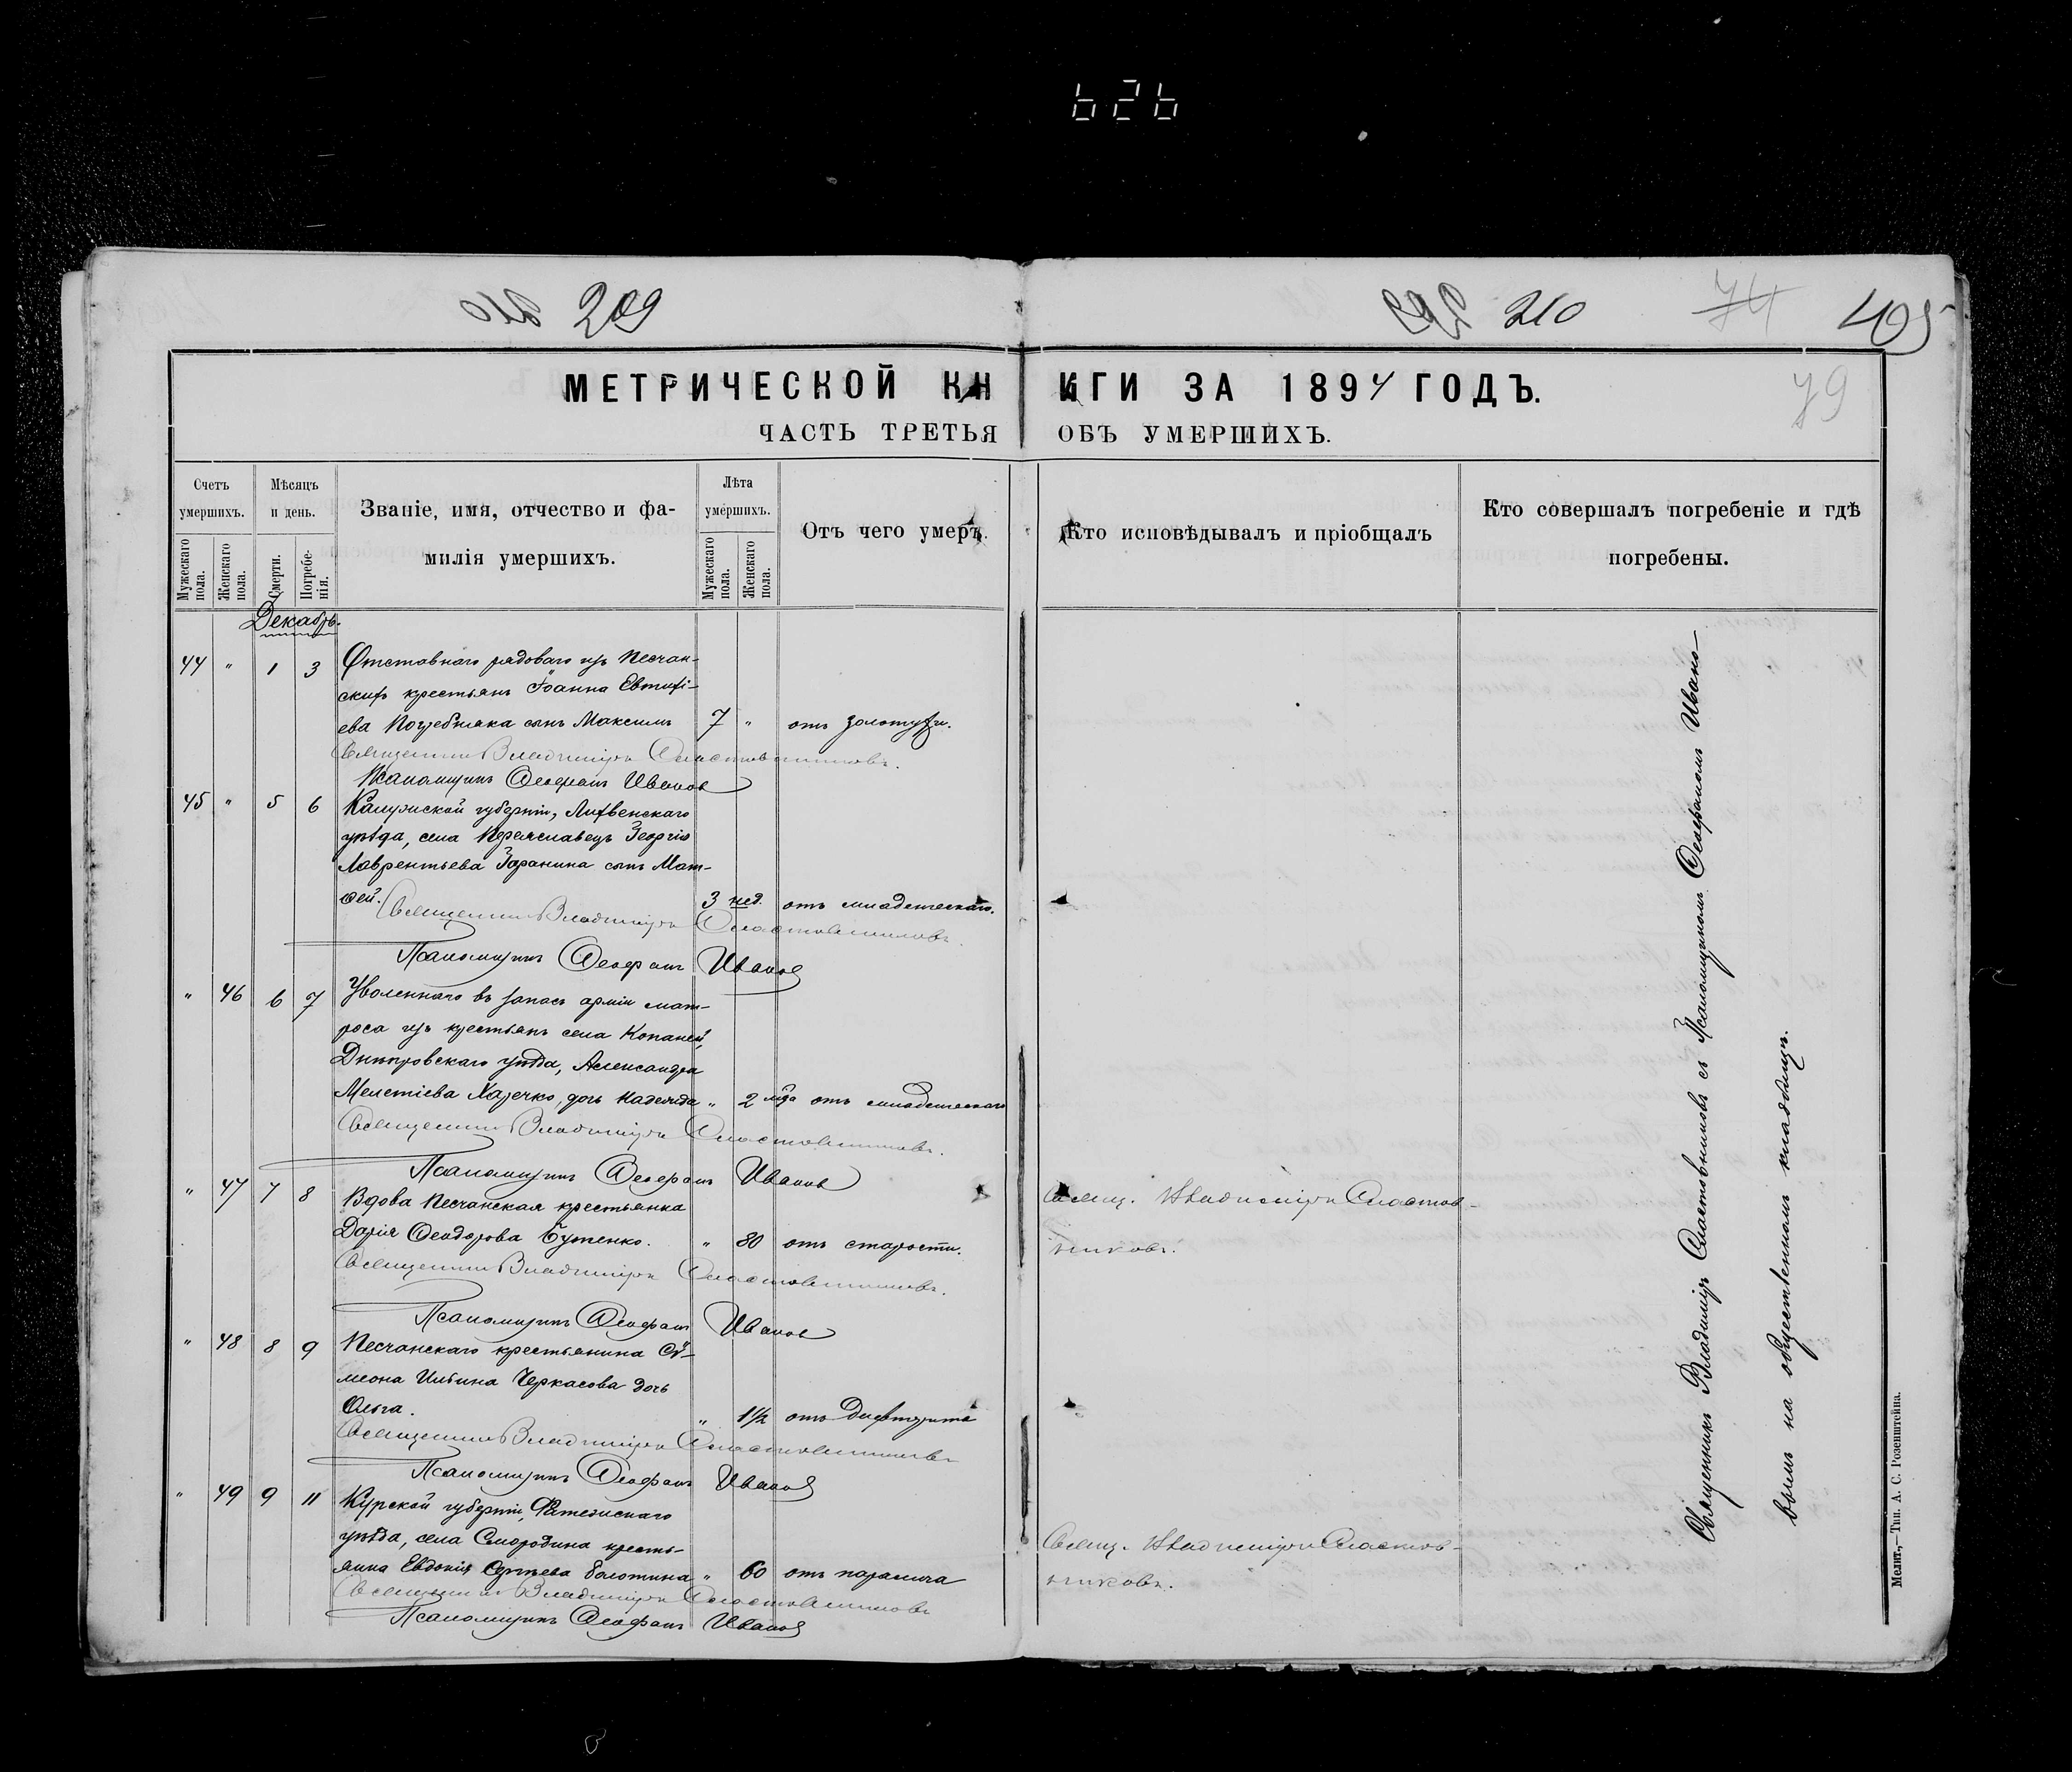 626
209
210
74
405
79
МЕТРИЧЕСКОЙ КНИГИ ЗА 1894 ГОДЪ.
ЧАСТЬ ТРЕТЬЯ ОБЪ УМЕРШИХЪ.
Счетъ умершихъ.
Мужескаго пола.
Женскаго пола.
Мѣсяцъ и день.
Смерти.
Погребенія.
Званіе, имя, отчество и фамилія умершихъ.
Лѣта умершихъ.
Мужескаго пола.
Женскаго пола.
Отъ чего умеръ.
Кто исповѣдывалъ и пріобщалъ
Кто совершалъ погребеніе и гдѣ погребены.
Декабрь.
44 " 1 3 Отставнаго рядоваго изъ Песчан-
скихъ крестьянъ Іоанна Евтихі-
ева Погребняка сынъ Максимъ 7 " отъ золотухи.
Священникъ Владиміръ Сластовниковъ.
Псаломщикъ Ѳеофанъ Ивановъ
45 " 5 6 Калужской губерніи, Лихвенскаго
уѣзда, села Переяславецъ Георгія
Лаврентьева Заранина сынъ Мат-
ѳей. 3 нед. отъ младенческаго.
Священникъ Владиміръ Сластовниковъ.
Псаломщикъ Ѳеофанъ Ивановъ
" 46 6 7 Уволеннаго въ запасъ арміи мат-
роса изъ крестьянъ села Копаней,
Днѣпровскаго уѣзда, Александра
Мелетіева Харечко, дочь Надежда " 2 м-ца отъ младенческаго
Священникъ Владиміръ Сластовниковъ.
Псаломщикъ Ѳеофанъ Ивановъ
" 47 7 8 Вдова Песчанская крестьянка
Дарія Ѳеодорова Бутенко. " 80 отъ старости.
Свящ. Владиміръ Сластов-
никовъ.
Священникъ Владиміръ Сластовниковъ.
Псаломщикъ Ѳеофанъ Ивановъ
" 48 8 9 Песчанскаго крестьянина Си-
меона Ильина Черкасова дочь
Ольга. " 1½ отъ дифтерита
Священникъ Владиміръ Сластовниковъ
Псаломщикъ Ѳеофанъ Ивановъ
" 49 9 11 Курской губерніи, Фатежскаго
уѣзда, села Смородина кресть-
янка Евдокія Сергѣева Болотина " 60 отъ паралича
Свящ. Владиміръ Сластов-
никовъ.
Священникъ Владиміръ Сластовниковъ
Псаломщикъ Ѳеофанъ Ивановъ
Священникъ Владиміръ Сластовниковъ съ Псаломщикомъ Ѳеофаномъ Ивано-
вымъ на общественномъ кладбищѣ.
Мелит.,—Тип. А. С. Розенштейна.